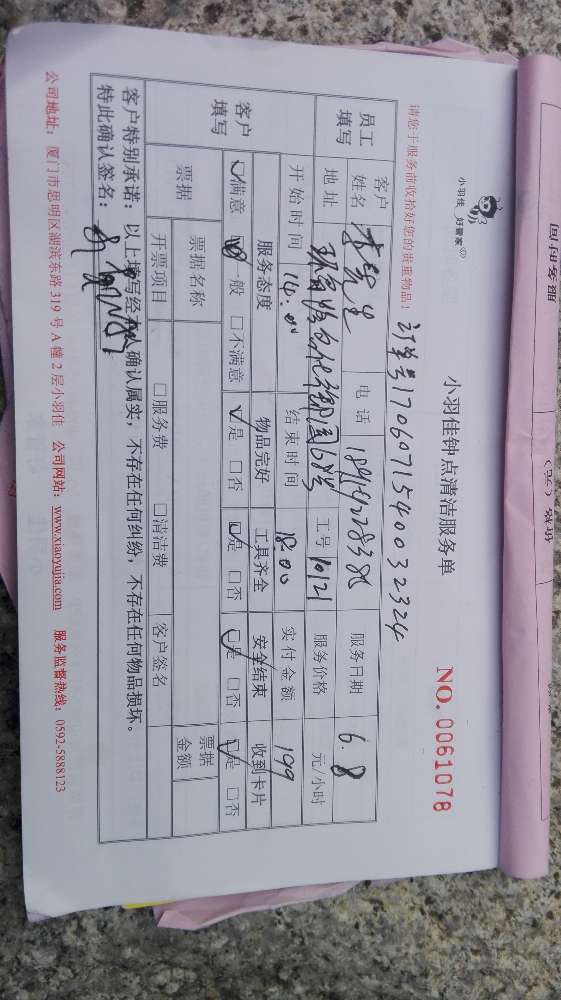 小羽佳 好管家
小羽佳钟点清洁服务单
NO. 0061078
请您于服务前收拾好您的贵重物品!
订单号1706071540032324
员工填写
客户姓名 电话 服务日期 6.8
地址 工号 10121 服务价格 元/小时
开始时间 14:00 结束时间 18:00 实付金额 199
客户填写
服务态度 物品完好 工具齐全 安全结束 收到卡片
☑满意 □一般 □不满意 ☑是 □否 ☑是 □否 ☑是 □否 ☑是 □否
票据 票据名称 票据金额
开票项目 □服务费 □清洁费 客户签名
客户特别承诺:以上填写经本人确认属实,不存在任何纠纷,不存在任何物品损坏。
特此确认签名:
公司地址:厦门市思明区湖滨东路 319 号 A 幢 2 层小羽佳 公司网站:www.xiaoyujia.com 服务监督热线:0592-5888123